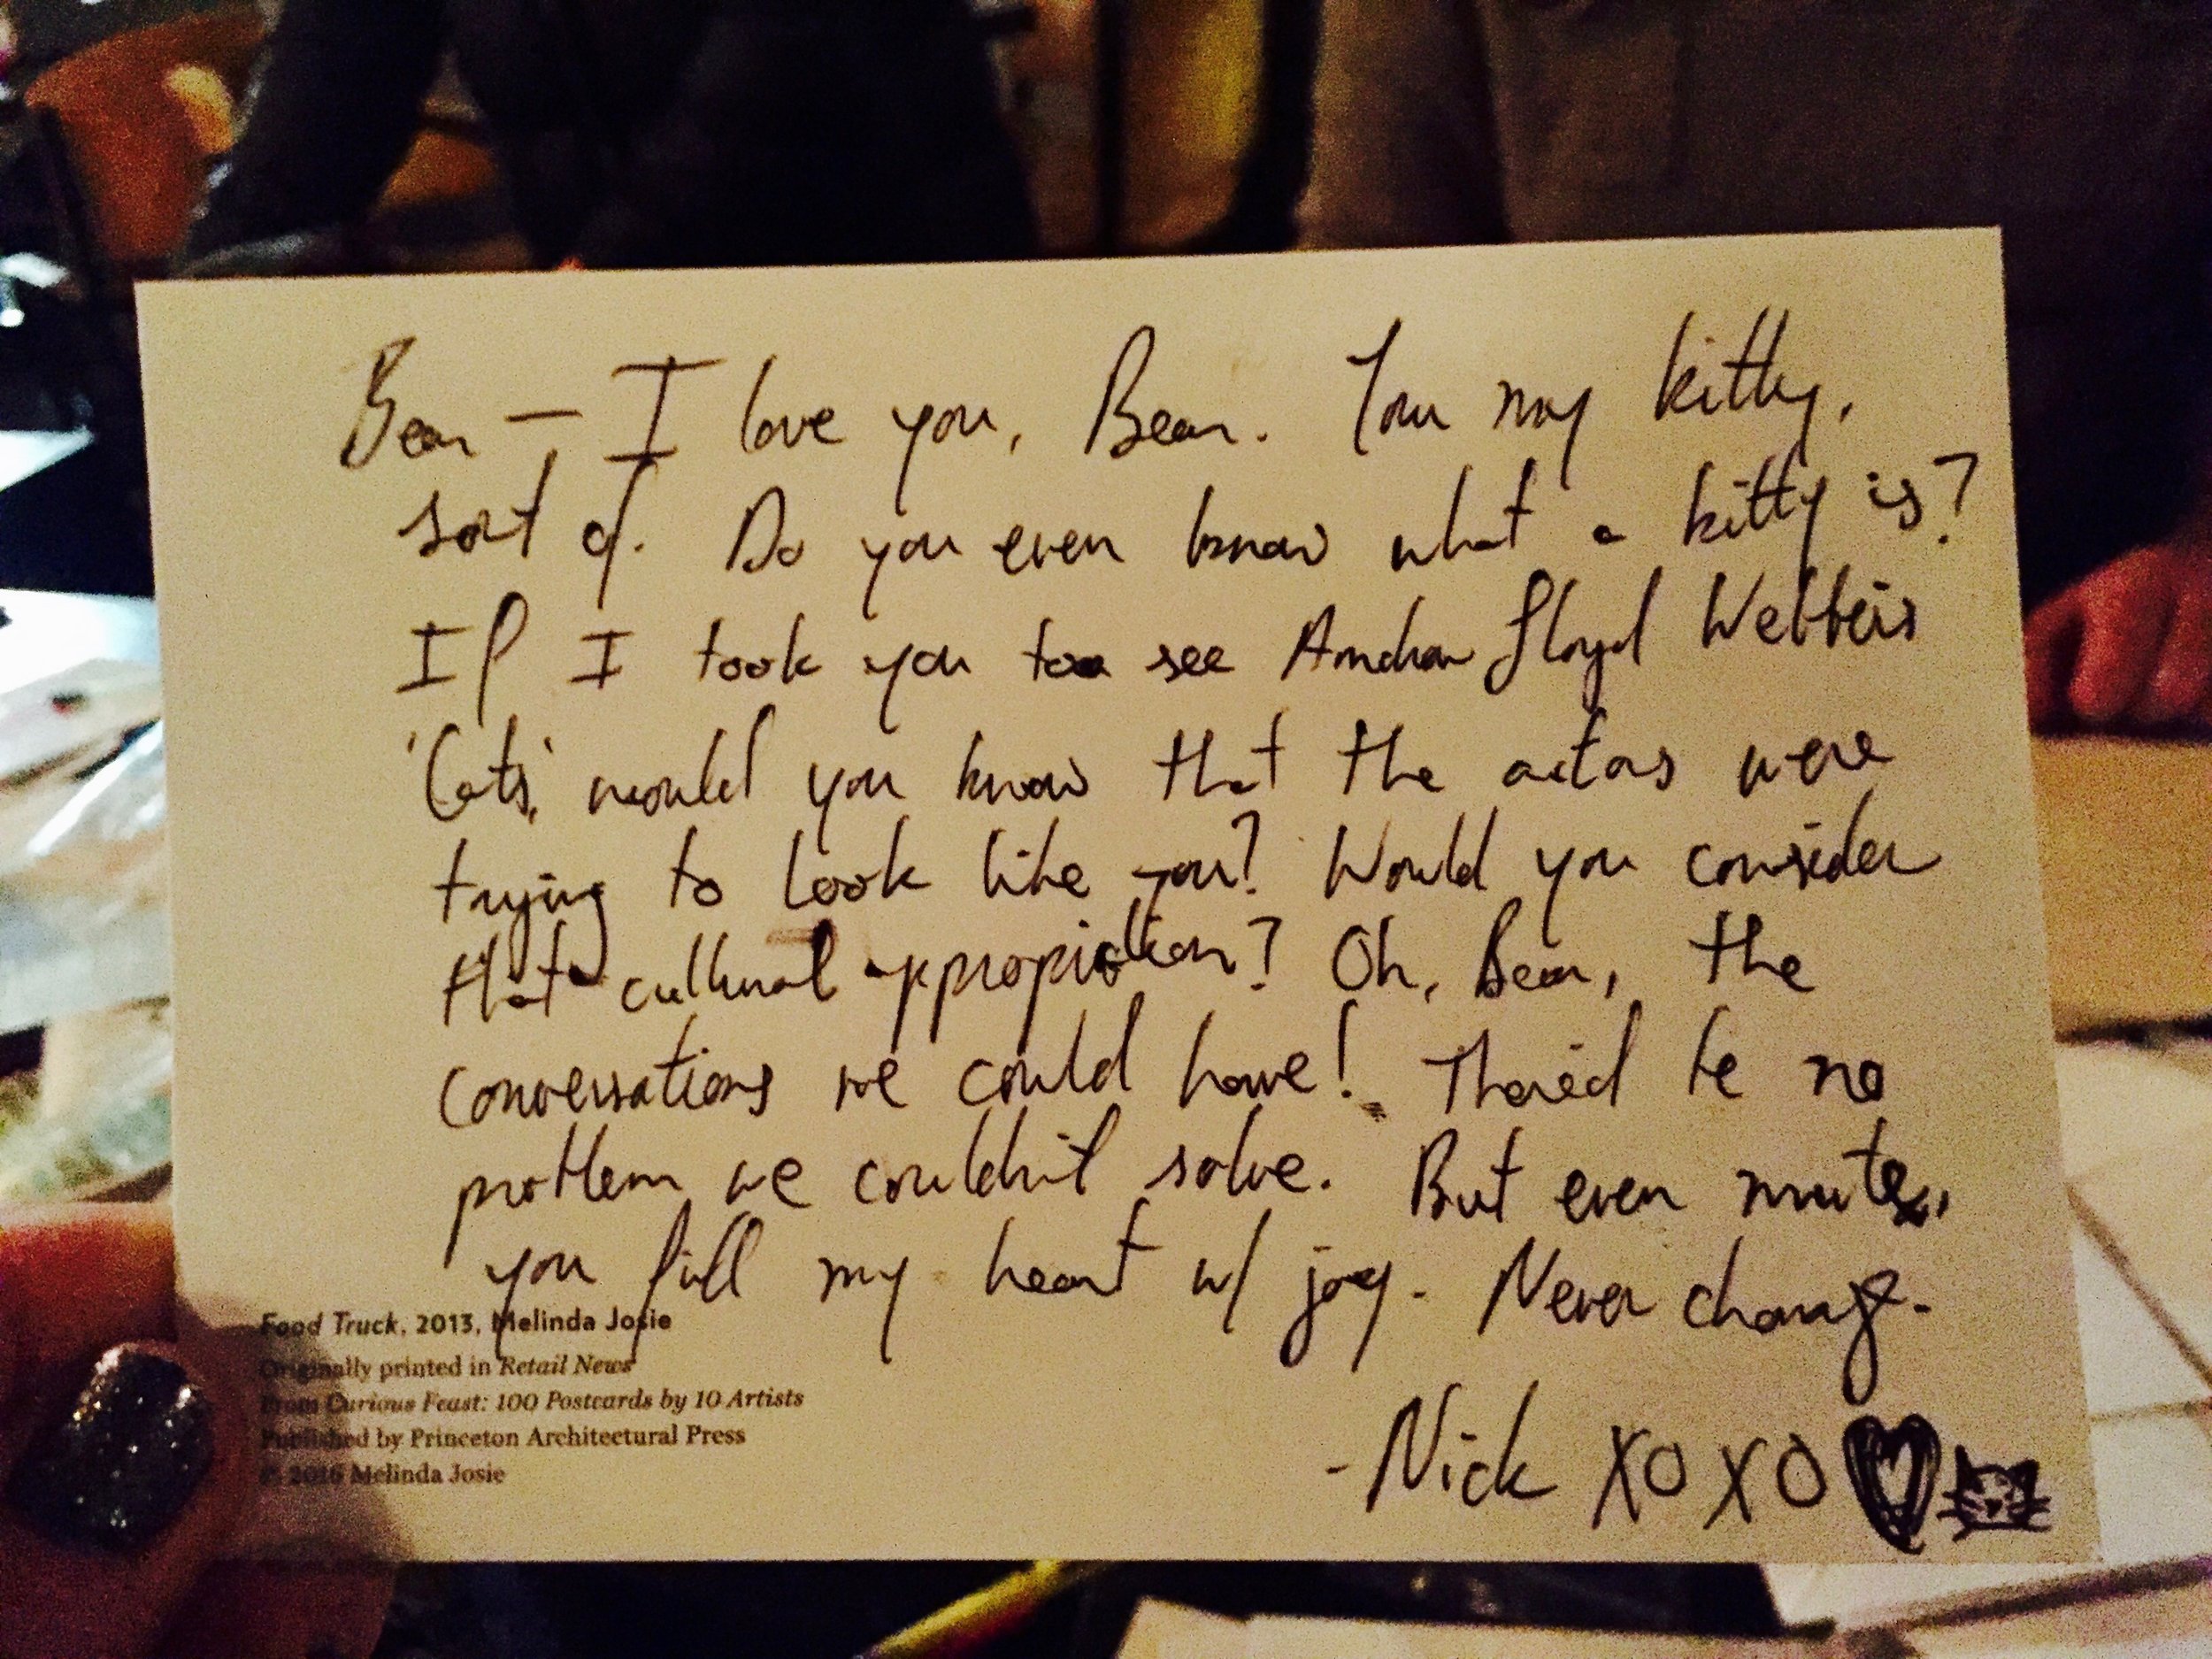 Bear — I love you, Bear. You my kitty,
sort of. Do you even know what a kitty is?
If I took you to see Andrew Lloyd Webber's
'Cats,' would you know that the actors were
trying to look like you? Would you consider
that cultural appropriation? Oh, Bear, the
conversations we could have! There'd be no
problem we couldn't solve. But even mute,
you fill my heart w/ joy. Never change.
- Nick XOXO
Food Truck, 2013, Melinda Josie
Originally printed in Retail News
From Curious Feast: 100 Postcards by 10 Artists
Published by Princeton Architectural Press
© 2016 Melinda Josie